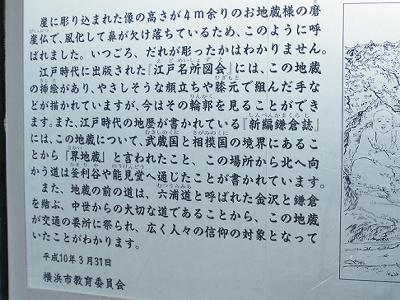 崖に彫り込まれた像の高さが4m余りのお地蔵様の磨
崖仏で、風化して鼻が欠け落ちているため、このように呼
ばれました。いつごろ、だれが彫ったかはわかりません。
江戸時代に出版された『江戸名所図会』には、この地蔵
の挿絵があり、やさしそうな顔立ちや膝元で組んだ手な
どが描かれていますが、今はその輪郭を見ることができ
ます。また、江戸時代の地歴が書かれている『新編鎌倉誌』
には、この地蔵について、武蔵国と相模国の境界にあるこ
とから「界地蔵」と言われたこと、この場所から北へ向
かう道は釜利谷や能見堂へ通じたことが書かれています。
また、地蔵の前の道は、六浦道と呼ばれた金沢と鎌倉
を結ぶ、中世からの大切な道であることから、この地蔵
が交通の要所に祭られ、広く人々の信仰の対象となって
いたことがわかります。
平成10年3月31日
横浜市教育委員会